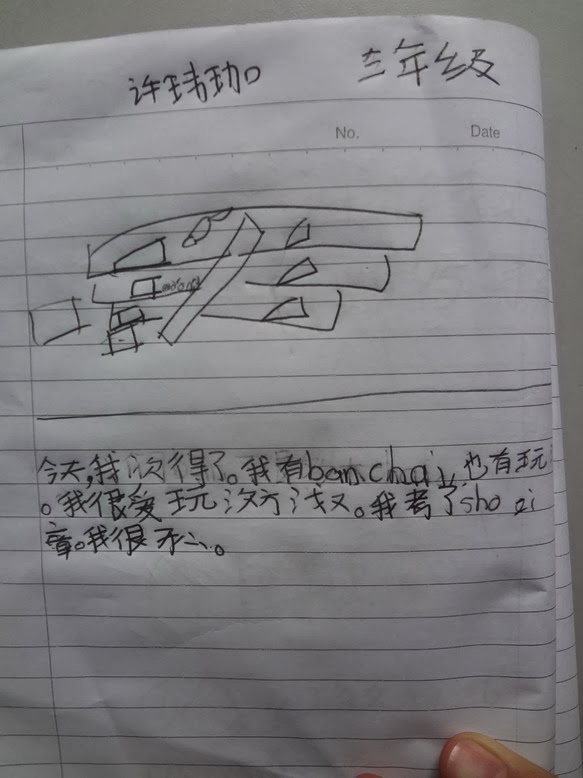 许玮珈 三年级
No. Date
今天,我 得了。我有ban chai,也有玩
。我很爱玩 。我考了sho zi
章。我很开心。